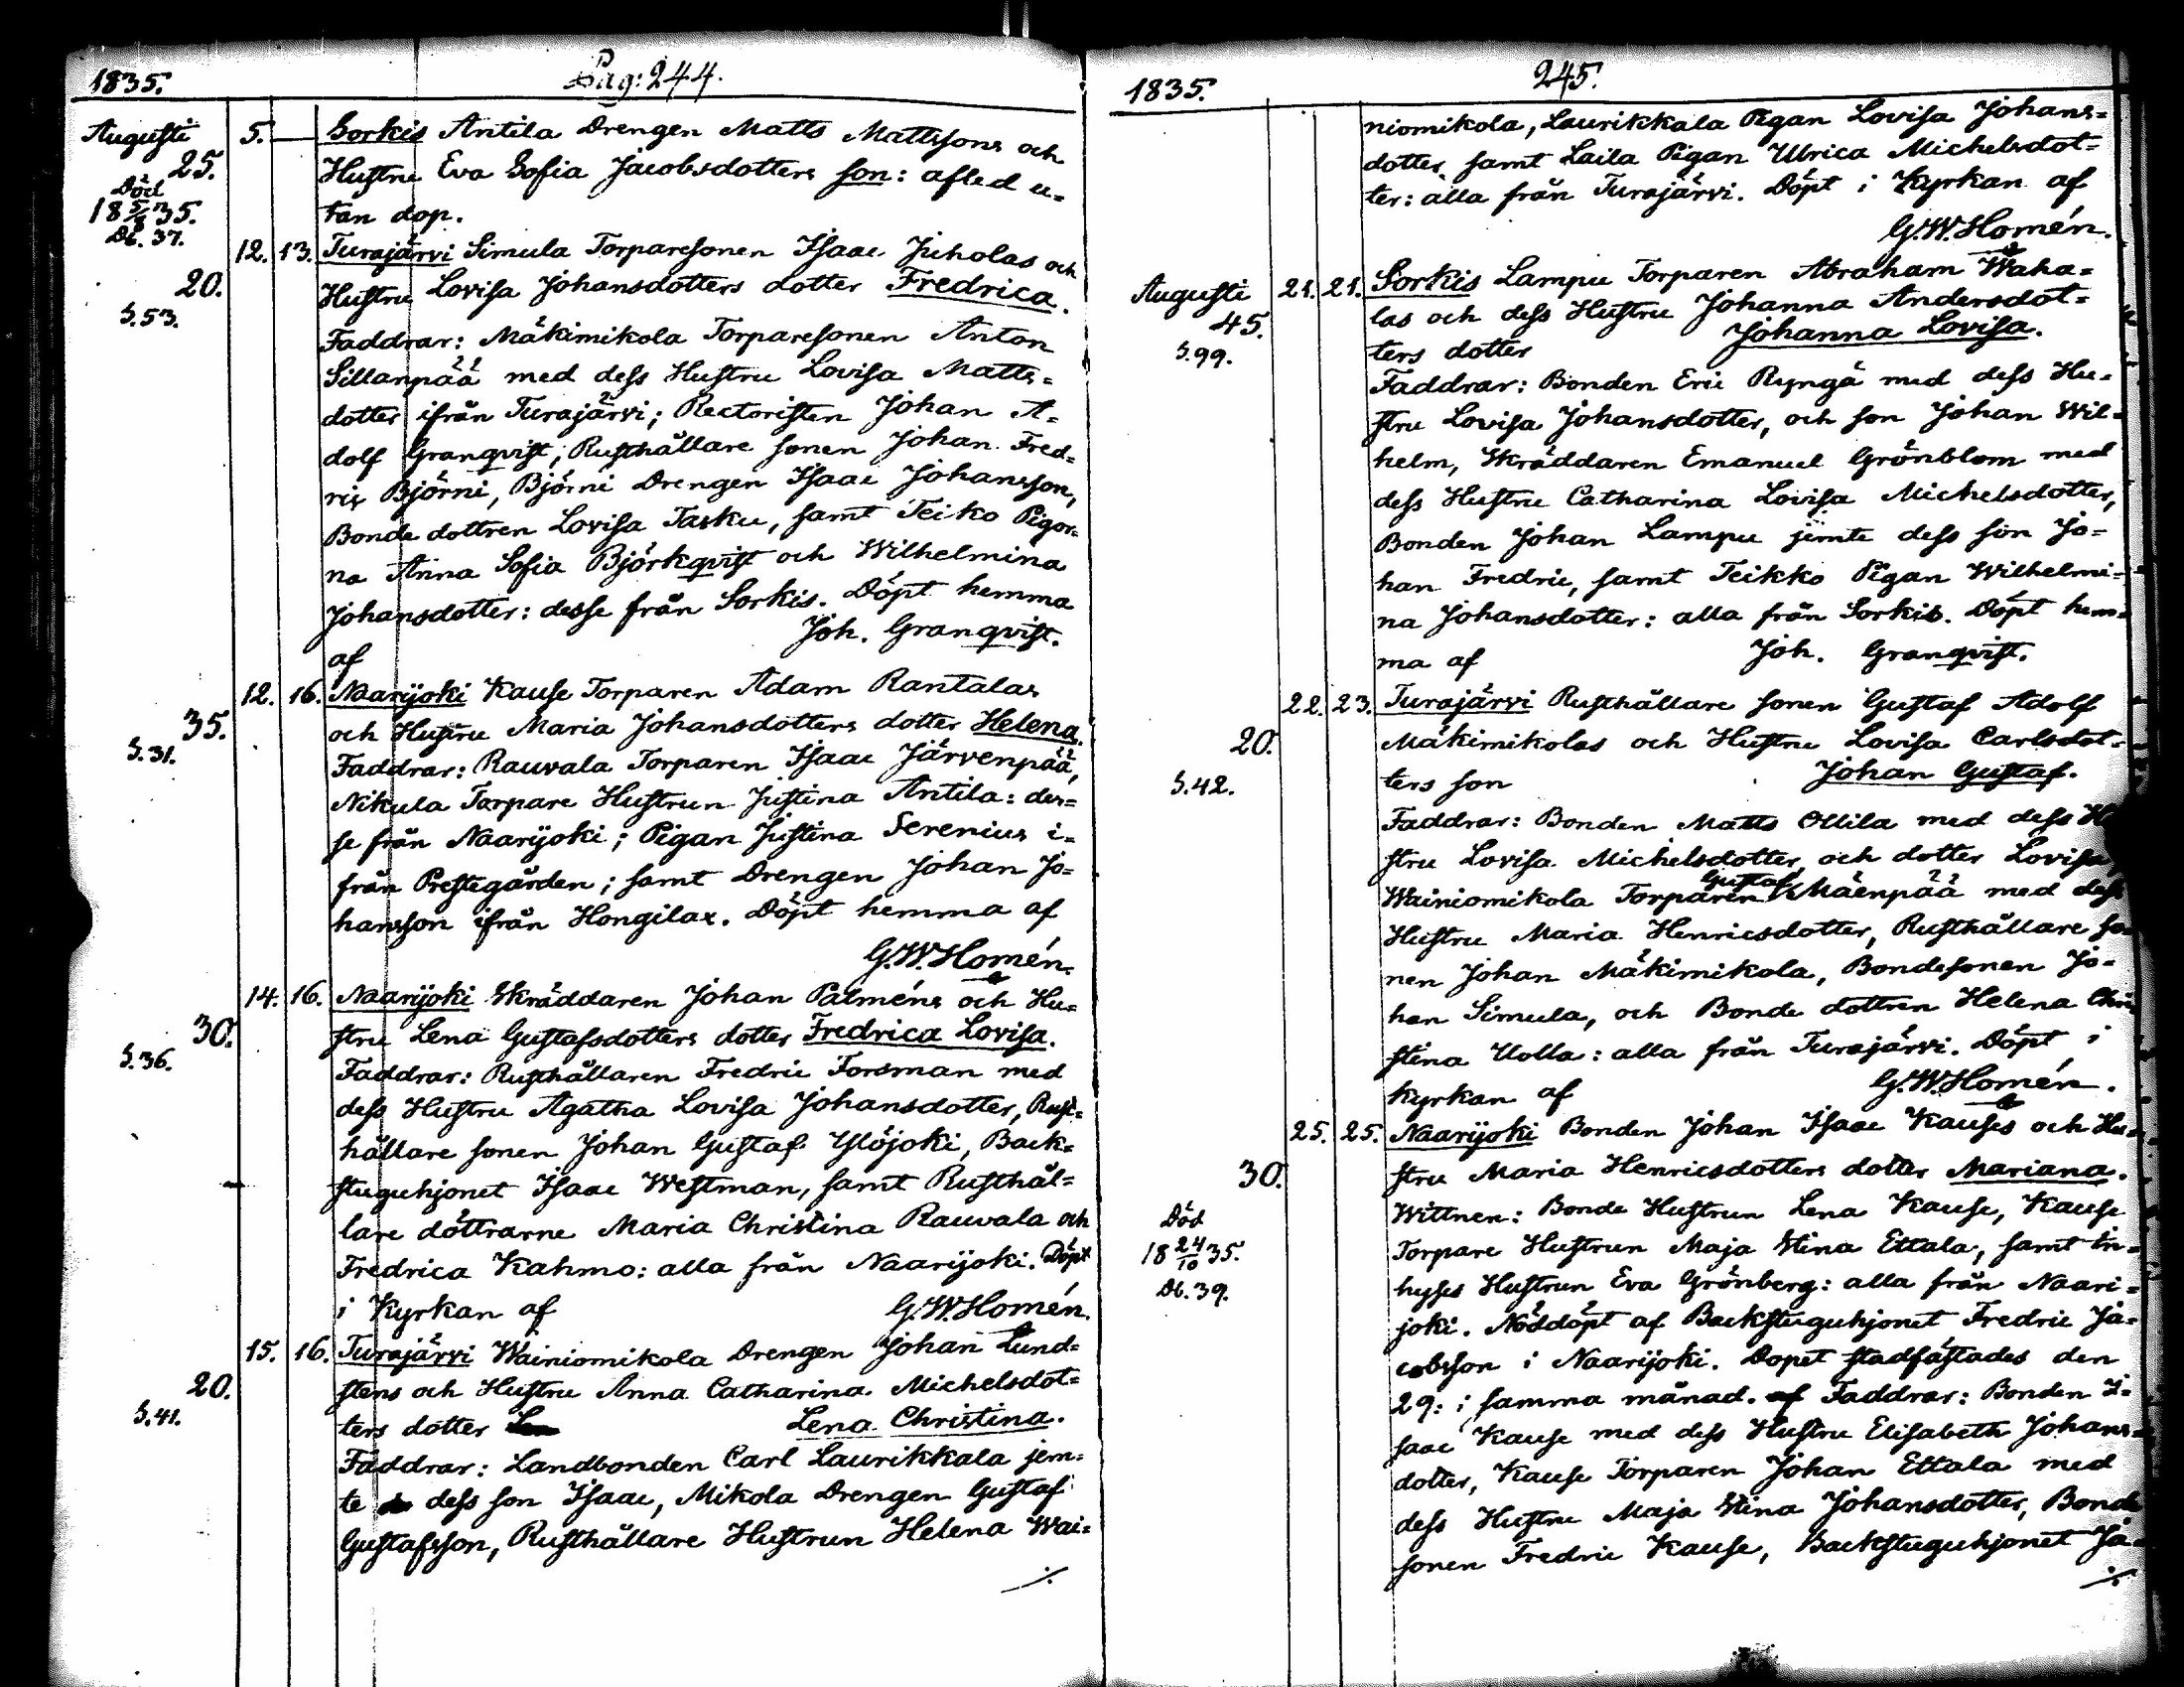 1835.
Pag: 244.
Augusti
25.
Död
18 5/8 35.
Db. 37.
5. — Sorkis Antila Drengen Matts Mattssons och
Hustru Eva Sofia Jacobsdotters son: afled u=
tan dop.
12. 13. Turajärvi Simula Torparesonen Isaac Juholas och
20.
S. 53.
Hustru Lovisa Johansdotters dotter Fredrica.
Faddrar: Mäkimikola Torparesonen Anton
Sillanpää med dess Hustru Lovisa Matts=
dotter ifrån Turajärvi; Rectoristen Johan A=
dolf Granqvist; Rusthållare sonen Johan Fred=
ric Björni, Björni Drengen Isaac Johansson,
Bonde dottren Lovisa Tasku, samt Teiko Pigor=
na Anna Sofia Björkqvist och Wilhelmina
Johansdotter: desse från Sorkis. Döpt hemma
af Joh. Granqvist.
12. 16. Naarijoki Kause Torparen Adam Rantalas
35.
S. 31.
och Hustru Maria Johansdotters dotter Helena.
Faddrar: Rauvala Torparen Isaac Järvenpää,
Nikula Torpare Hustrun Justina Antila: des=
se från Naarijoki; Pigan Justina Serenius i=
från Prestegården; samt Drengen Johan Jo=
hansson ifrån Hongilax. Döpt hemma af
G. W. Homén.
14. 16. Naarijoki Skräddaren Johan Palméns och Hu=
30.
S. 36.
stru Lena Gustafsdotters dotter Fredrica Lovisa.
Faddrar: Rusthållaren Fredric Forsman med
dess Hustru Agatha Lovisa Johansdotter, Rust=
hållare sonen Johan Gustaf Ylöjoki, Back=
stuguhjonet Isaac Westman, samt Rusthål=
lare döttrarne Maria Christina Rauvala och
Fredrica Kahmo: alla från Naarijoki. Döpt
i Kyrkan af G. W. Homén.
15. 16. Turajärvi Wainiomikola Drengen Johan Lund=
20.
S. 41.
stens och Hustru Anna Catharina Michelsdot=
ters dotter Lena Christina.
Faddrar: Landbonden Carl Laurikkala jem=
te dess son Isaac, Mikola Drengen Gustaf
Gustafsson, Rusthållare Hustrun Helena Wai=
./.
1835.
245.
niomikola, Laurikkala Pigan Lovisa Johans=
dotter, samt Laila Pigan Ulrica Michelsdot=
ter: alla från Turajärvi. Döpt i Kyrkan af
G. W. Homén.
Augusti 21. 21. Sorkis Lampu Torparen Abraham Waha=
45.
S. 99.
las och dess Hustru Johanna Andersdot=
ters dotter Johanna Lovisa.
Faddrar: Bonden Eric Ryngä med dess Hu=
stru Lovisa Johansdotter, och son Johan Wil=
helm, Skräddaren Emanuel Grönblom med
dess Hustru Catharina Lovisa Michelsdotter,
Bonden Johan Lampu jemte dess son Jo=
han Fredric, samt Teikko Pigan Wilhelmi=
na Johansdotter: alla från Sorkis. Döpt hem=
ma af Joh. Granqvist.
22. 23. Turajärvi Rusthållare sonen Gustaf Adolf
20.
S. 42.
Mäkimikolas och Hustru Lovisa Carlsdot=
ters son Johan Gustaf.
Faddrar: Bonden Matts Ollila med dess Hu
stru Lovisa Michelsdotter, och dotter Lovisa,
Wainiomikola Torparen Gustaf Mäenpää med dess
Hustru Maria Henricsdotter, Rusthållare so
nen Johan Mäkimikola, Bondesonen Jo=
han Simula, och Bonde dottren Helena Chri
stina Uolla: alla från Turajärvi. Döpt i
Kyrkan af G. W. Homén.
25. 25. Naarijoki Bonden Johan Isaac Kauses och Hu=
30.
Död
18 24/10 35.
Db. 39.
stru Maria Henricsdotters dotter Mariana.
Wittnen: Bonde Hustrun Lena Kause, Kause
Torpare Hustrun Maja Stina Ettala, samt In=
hyses Hustrun Eva Grönberg: alla från Naari=
joki. Nöddöpt af Backstuguhjonet Fredric Ja=
cobsson i Naarijoki. Dopet stadfästades den
29: i samma månad. af Faddrar: Bonden I=
saac Kause med dess Hustru Elisabeth Johans=
dotter, Kause Torparen Johan Ettala med
dess Hustru Maja Stina Johansdotter, Bonde
sonen Fredric Kause, Backstuguhjonet Ja=
./.